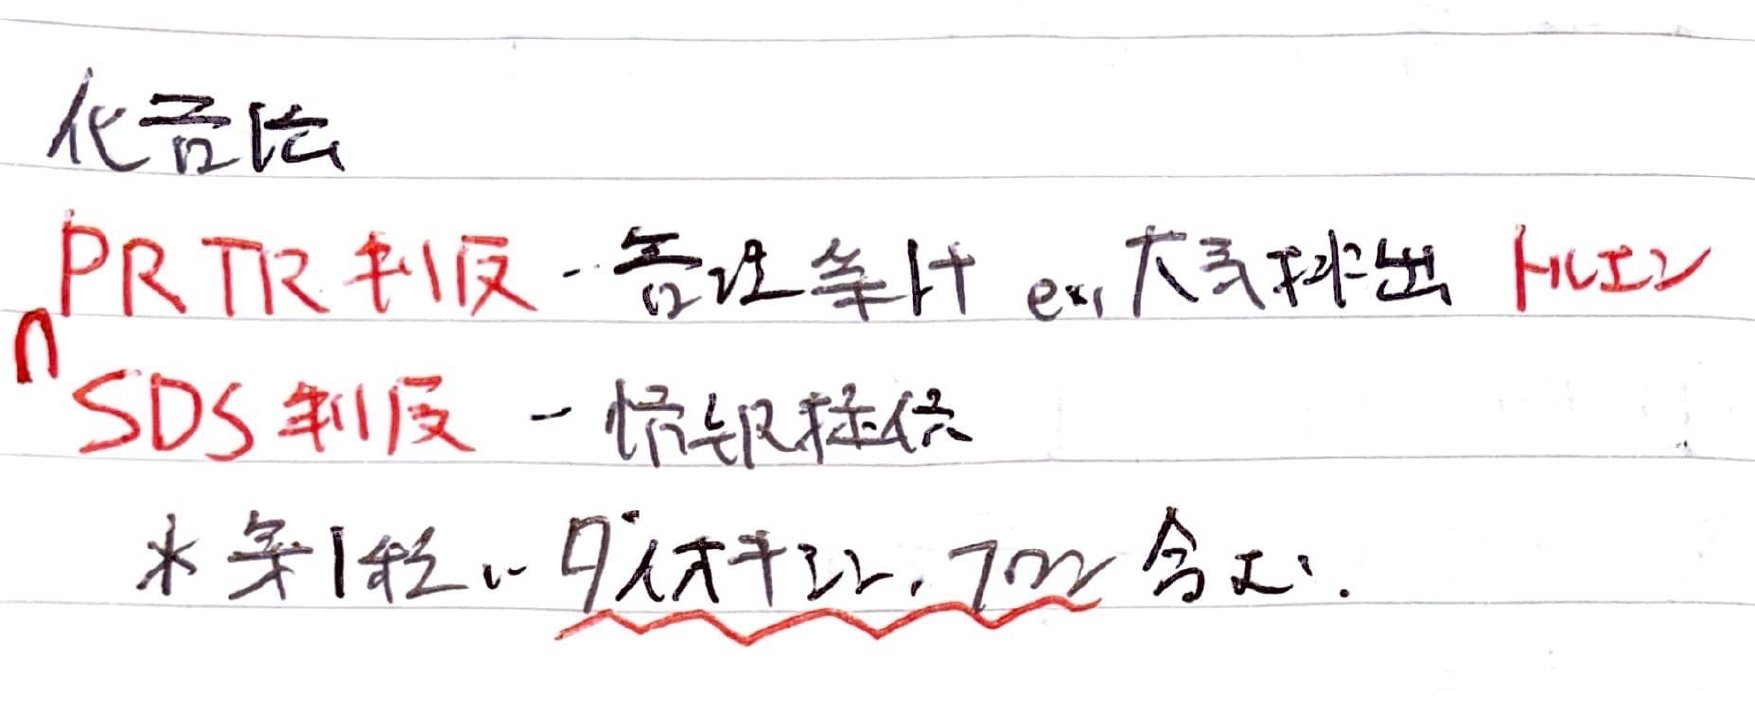 化管法
PRTR制度 … 管理条件 ex, 大気排出 トルエン
∩
SDS制度 － 情報提供
※第1種 … ダイオキシン, フロン 含む.